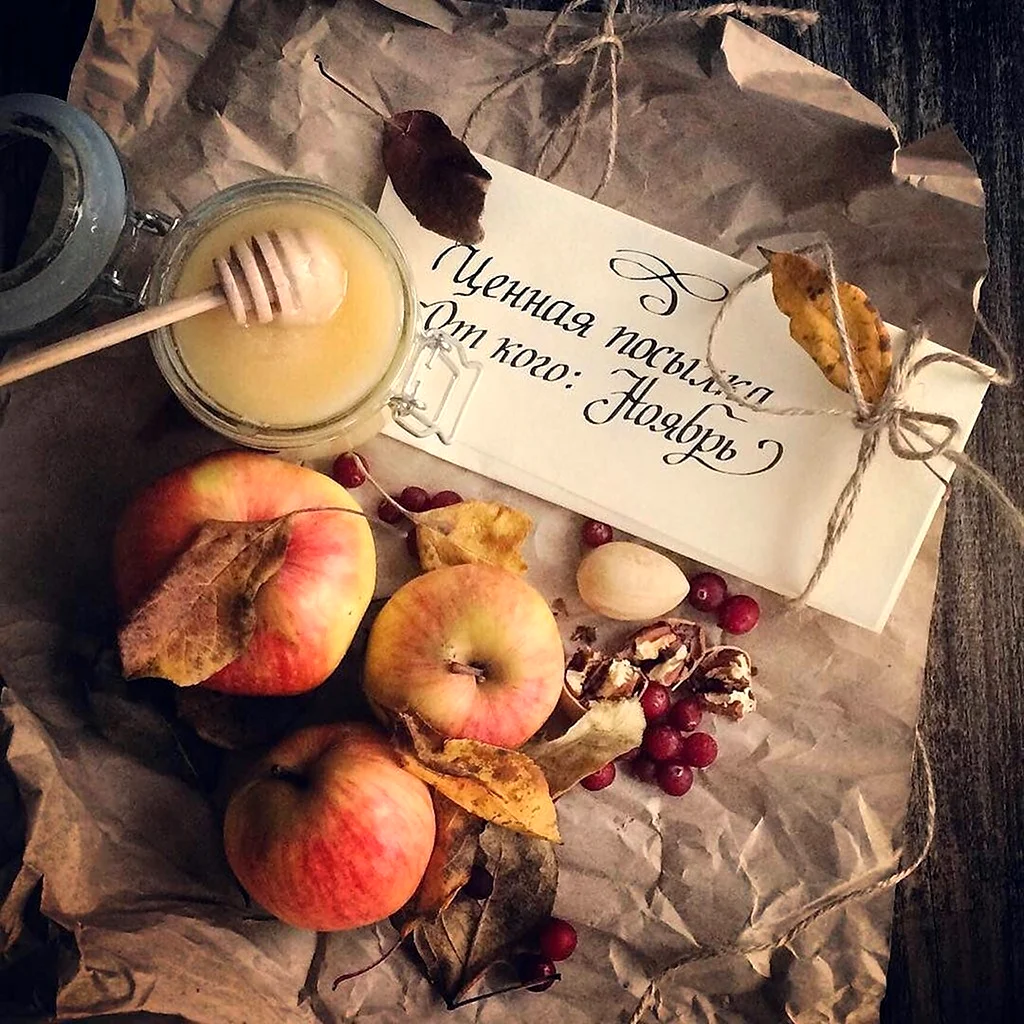 Ценная посылка
От кого: Ноябрь